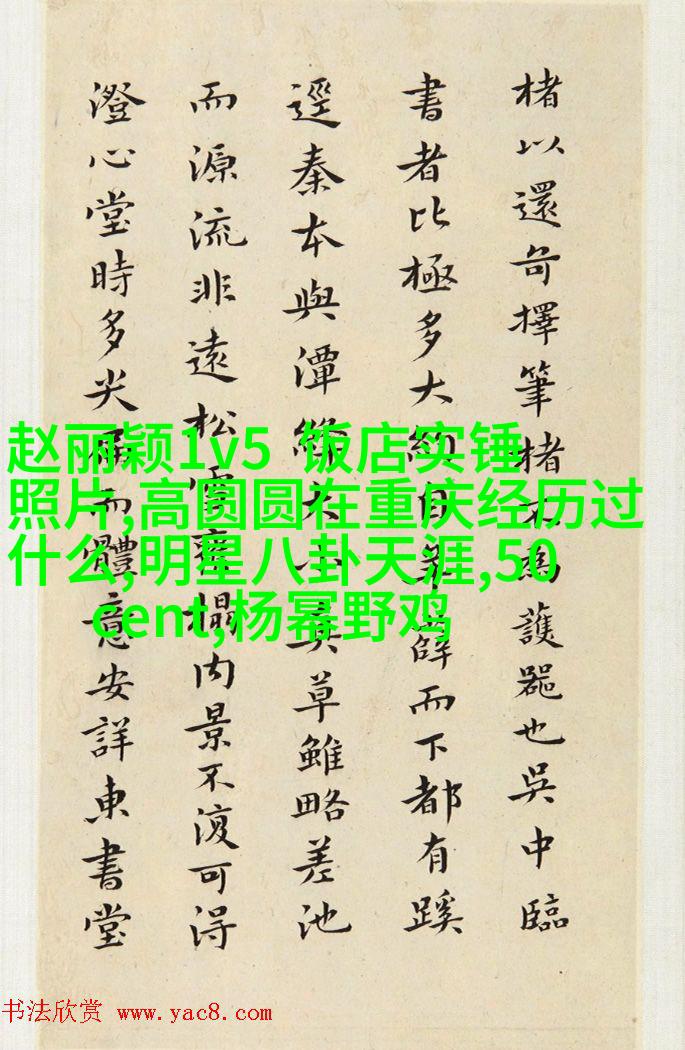 楮以還奇擇筆楮不為護器也吳中臨
書者比極多大約自弟薛而下都有蹊
逕秦本與潭絳大小真草雖略差池
而源流非遠松雪齋榻內景不復可得
澄心堂時多尖展而體意安詳東書堂
赵丽颖1v5 饭店实锤
照片,高圆圆在重庆经历过
什么,明星八卦天涯,50
cent,杨幂野鸡
书法欣赏 www.yac8.com